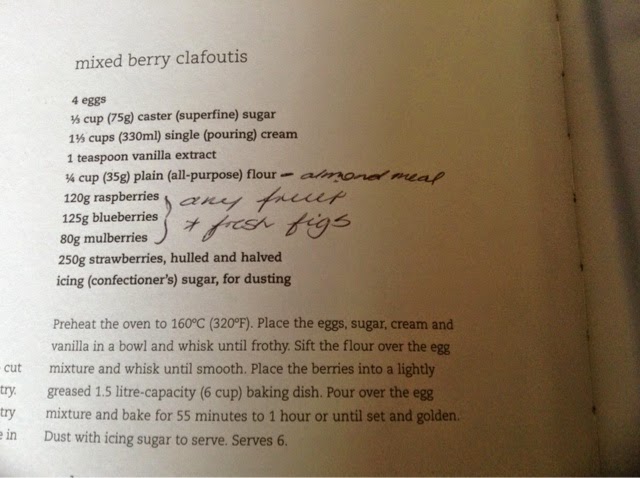 mixed berry clafoutis
4 eggs
⅓ cup (75g) caster (superfine) sugar
1⅓ cups (330ml) single (pouring) cream
1 teaspoon vanilla extract
¼ cup (35g) plain (all-purpose) flour – almond meal
120g raspberries } any fruit
125g blueberries + fresh figs
80g mulberries
250g strawberries, hulled and halved
icing (confectioner's) sugar, for dusting
Preheat the oven to 160ºC (320ºF). Place the eggs, sugar, cream and
vanilla in a bowl and whisk until frothy. Sift the flour over the egg
cut mixture and whisk until smooth. Place the berries into a lightly
try. greased 1.5 litre-capacity (6 cup) baking dish. Pour over the egg
try mixture and bake for 55 minutes to 1 hour or until set and golden.
e in Dust with icing sugar to serve. Serves 6.